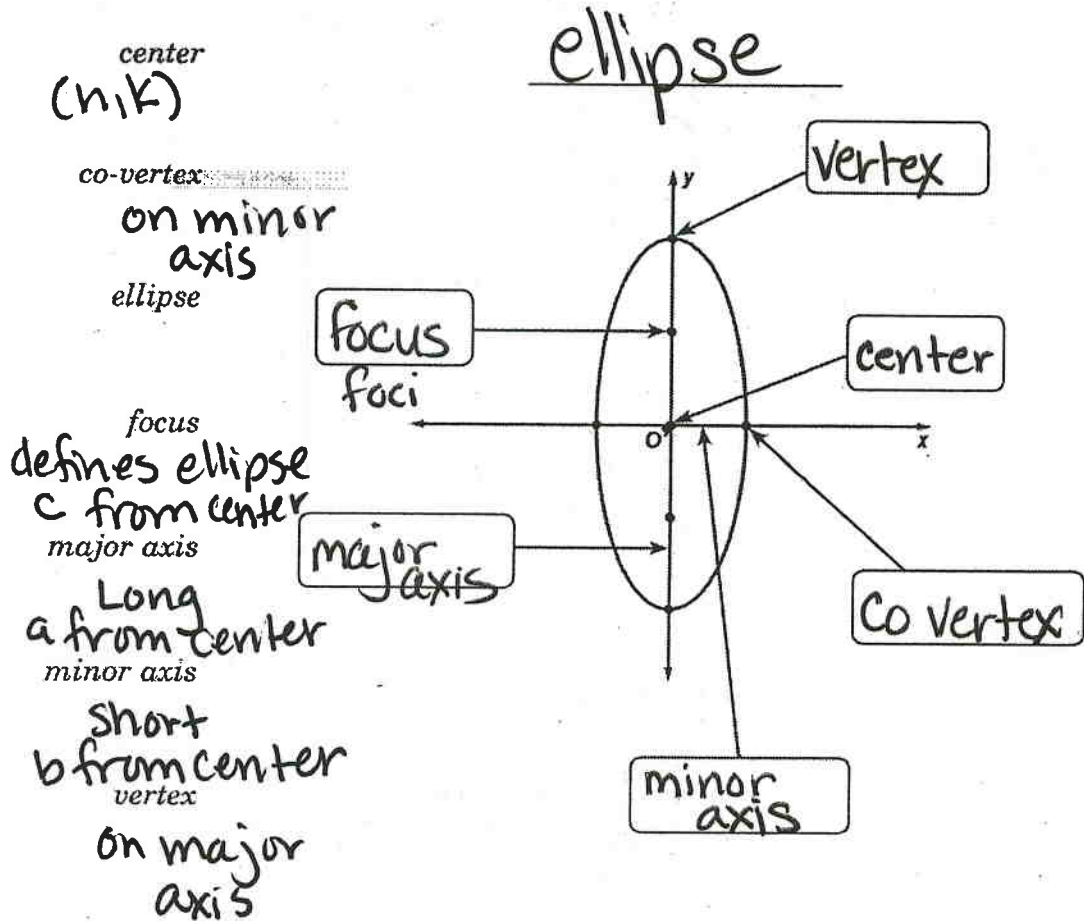 ellipse
center
(h,k)
co-vertex
on minor
axis
ellipse
focus
defines ellipse
c from center
major axis
Long
a from center
minor axis
short
b from center
vertex
on major
axis
vertex
y
focus
foci
center
O
x
major
axis
co vertex
minor
axis